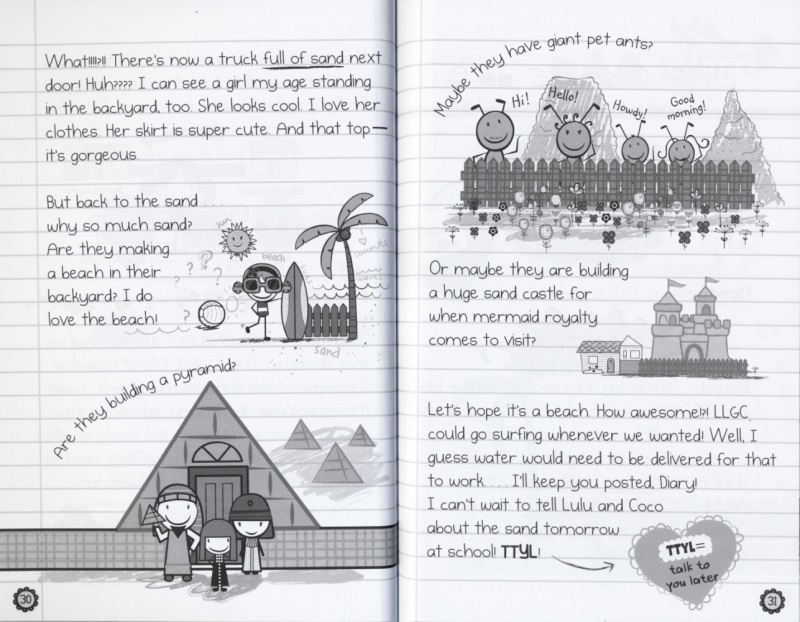 What!!!!?!! There's now a truck full of sand next
door! Huh???? I can see a girl my age standing
in the backyard, too. She looks cool. I love her
clothes. Her skirt is super cute. And that top—
it's gorgeous.
But back to the sand . . . .
why so much sand?
Are they making
a beach in their
backyard? I do
love the beach!
sun
? ? ? ? ?
beach
coconuts
waves
sand
Are they building a pyramid?
30
Maybe they have giant pet ants?
Hi!
Hello!
Howdy!
Good
morning!
Or maybe they are building
a huge sand castle for
when mermaid royalty
comes to visit?
Let's hope it's a beach. How awesome!?! LLGC,
could go surfing whenever we wanted! Well, I
guess water would need to be delivered for that
to work. . . . I'll keep you posted, Diary!
I can't wait to tell Lulu and Coco
about the sand tomorrow
at school! TTYL!
TTYL=
talk to
you later
31